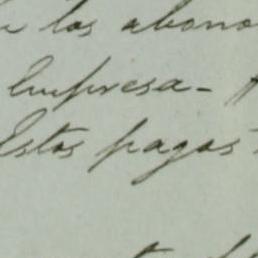 los abono
Empresa-
Estos pagos